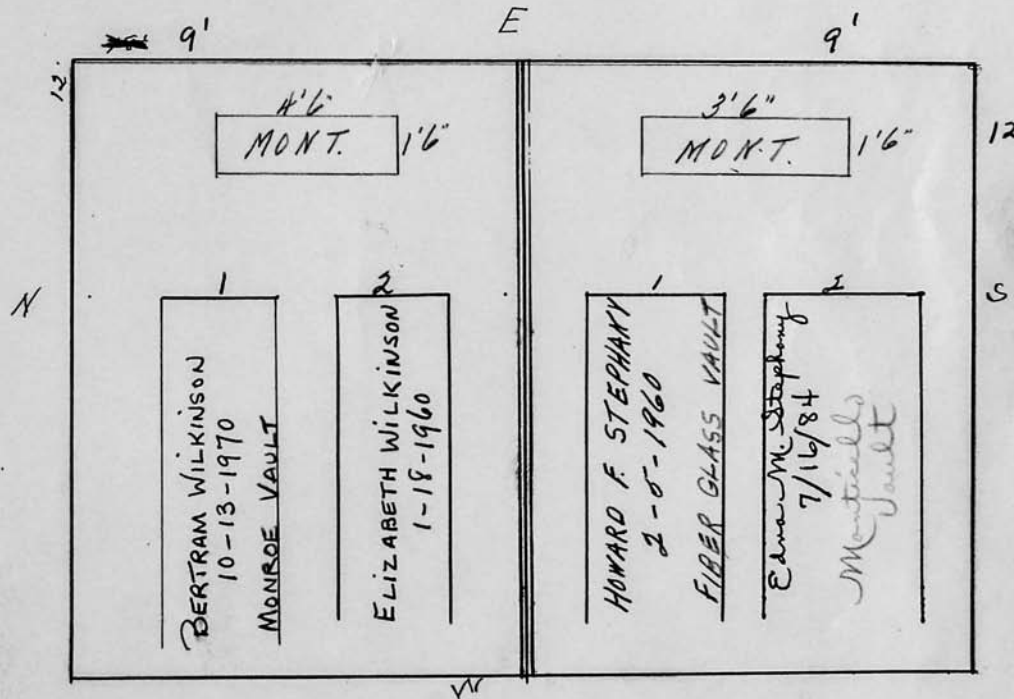 E
9'
9'
12
4'6"
MONT.
1'6"
3'6"
MONT.
1'6"
12
N
S
1
BERTRAM WILKINSON
10-13-1970
MONROE VAULT
2
ELIZABETH WILKINSON
1-18-1960
1
HOWARD F. STEPHANY
2-5-1960
FIBER GLASS VAULT
2
Edna M. Stephany
7/16/84
Monticello
Vault
W